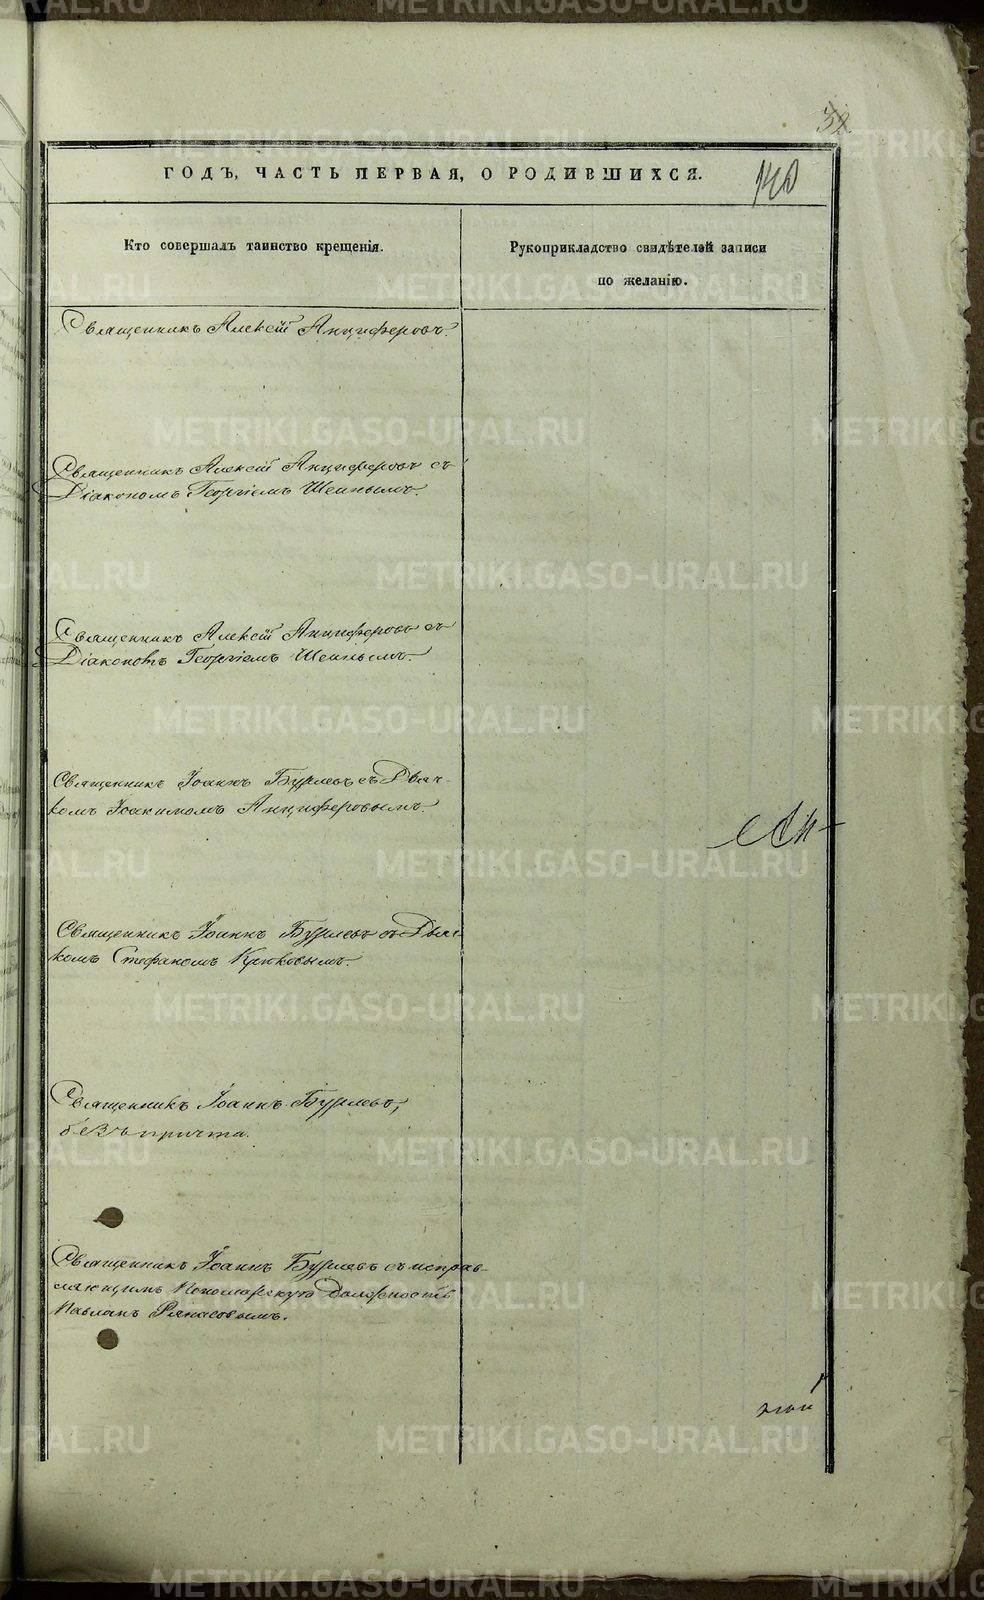 ГОДЪ, ЧАСТЬ ПЕРВАЯ, О РОДИВШИХСЯ.
140
Кто совершалъ таинство крещенія.
Рукоприкладство свидѣтелей записи
по желанію.
Священникъ Алексій Анциферовъ.
Священникъ Алексій Анциферовъ съ
Діакономъ Георгіемъ Шеинымъ.
Священникъ Алексій Анциферовъ съ
Діакономъ Георгіемъ Шеинымъ.
Священникъ Іоаннъ Бурлевъ съ Дьяч-
комъ Іоакимомъ Анциферовымъ.
Священникъ Іоаннъ Бурлевъ съ Дьяч-
комъ Стефаномъ Крюковымъ.
Священникъ Іоаннъ Бурлевъ,
безъ причта.
Священникъ Іоаннъ Бурлевъ съ исправ-
ляющимъ Пономарскую Должность
METRIKI.GASO-URAL.RU